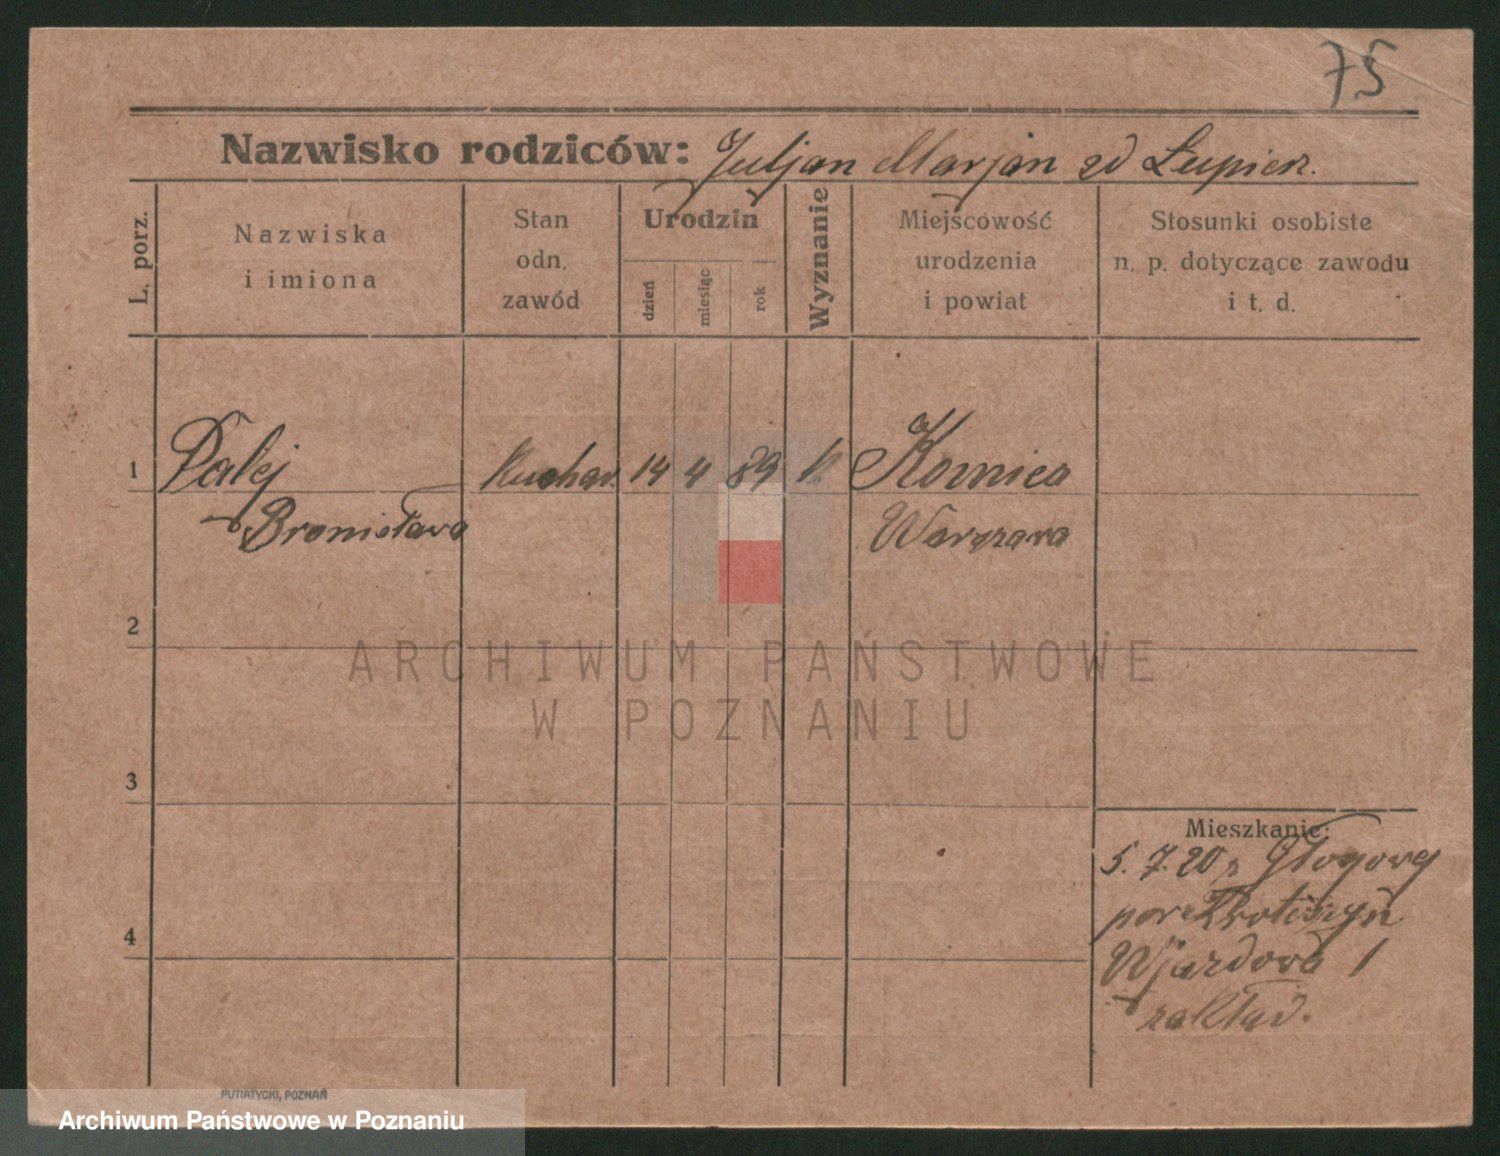 75
Nazwisko rodziców: Juljan Marjan zd Lupicz.
L. porz.
Nazwiska
i imiona
Stan
odn.
zawód
Urodzin
dzień
miesiąc
rok
Wyznanie
Miejscowość
urodzenia
i powiat
Stosunki osobiste
n. p. dotyczące zawodu
i t. d.
1 Palej Kuchar. 14 4 89 k. Kornica
Bronisława Warszawa
2
3
4
Mieszkanie:
5. 7. 20 z Głogowej
pow Krotoszyn
Wjazdowa 1
zakład.
PUTIATYCKI, POZNAŃ
ARCHIWUM PAŃSTWOWE
W POZNANIU
Archiwum Państwowe w Poznaniu